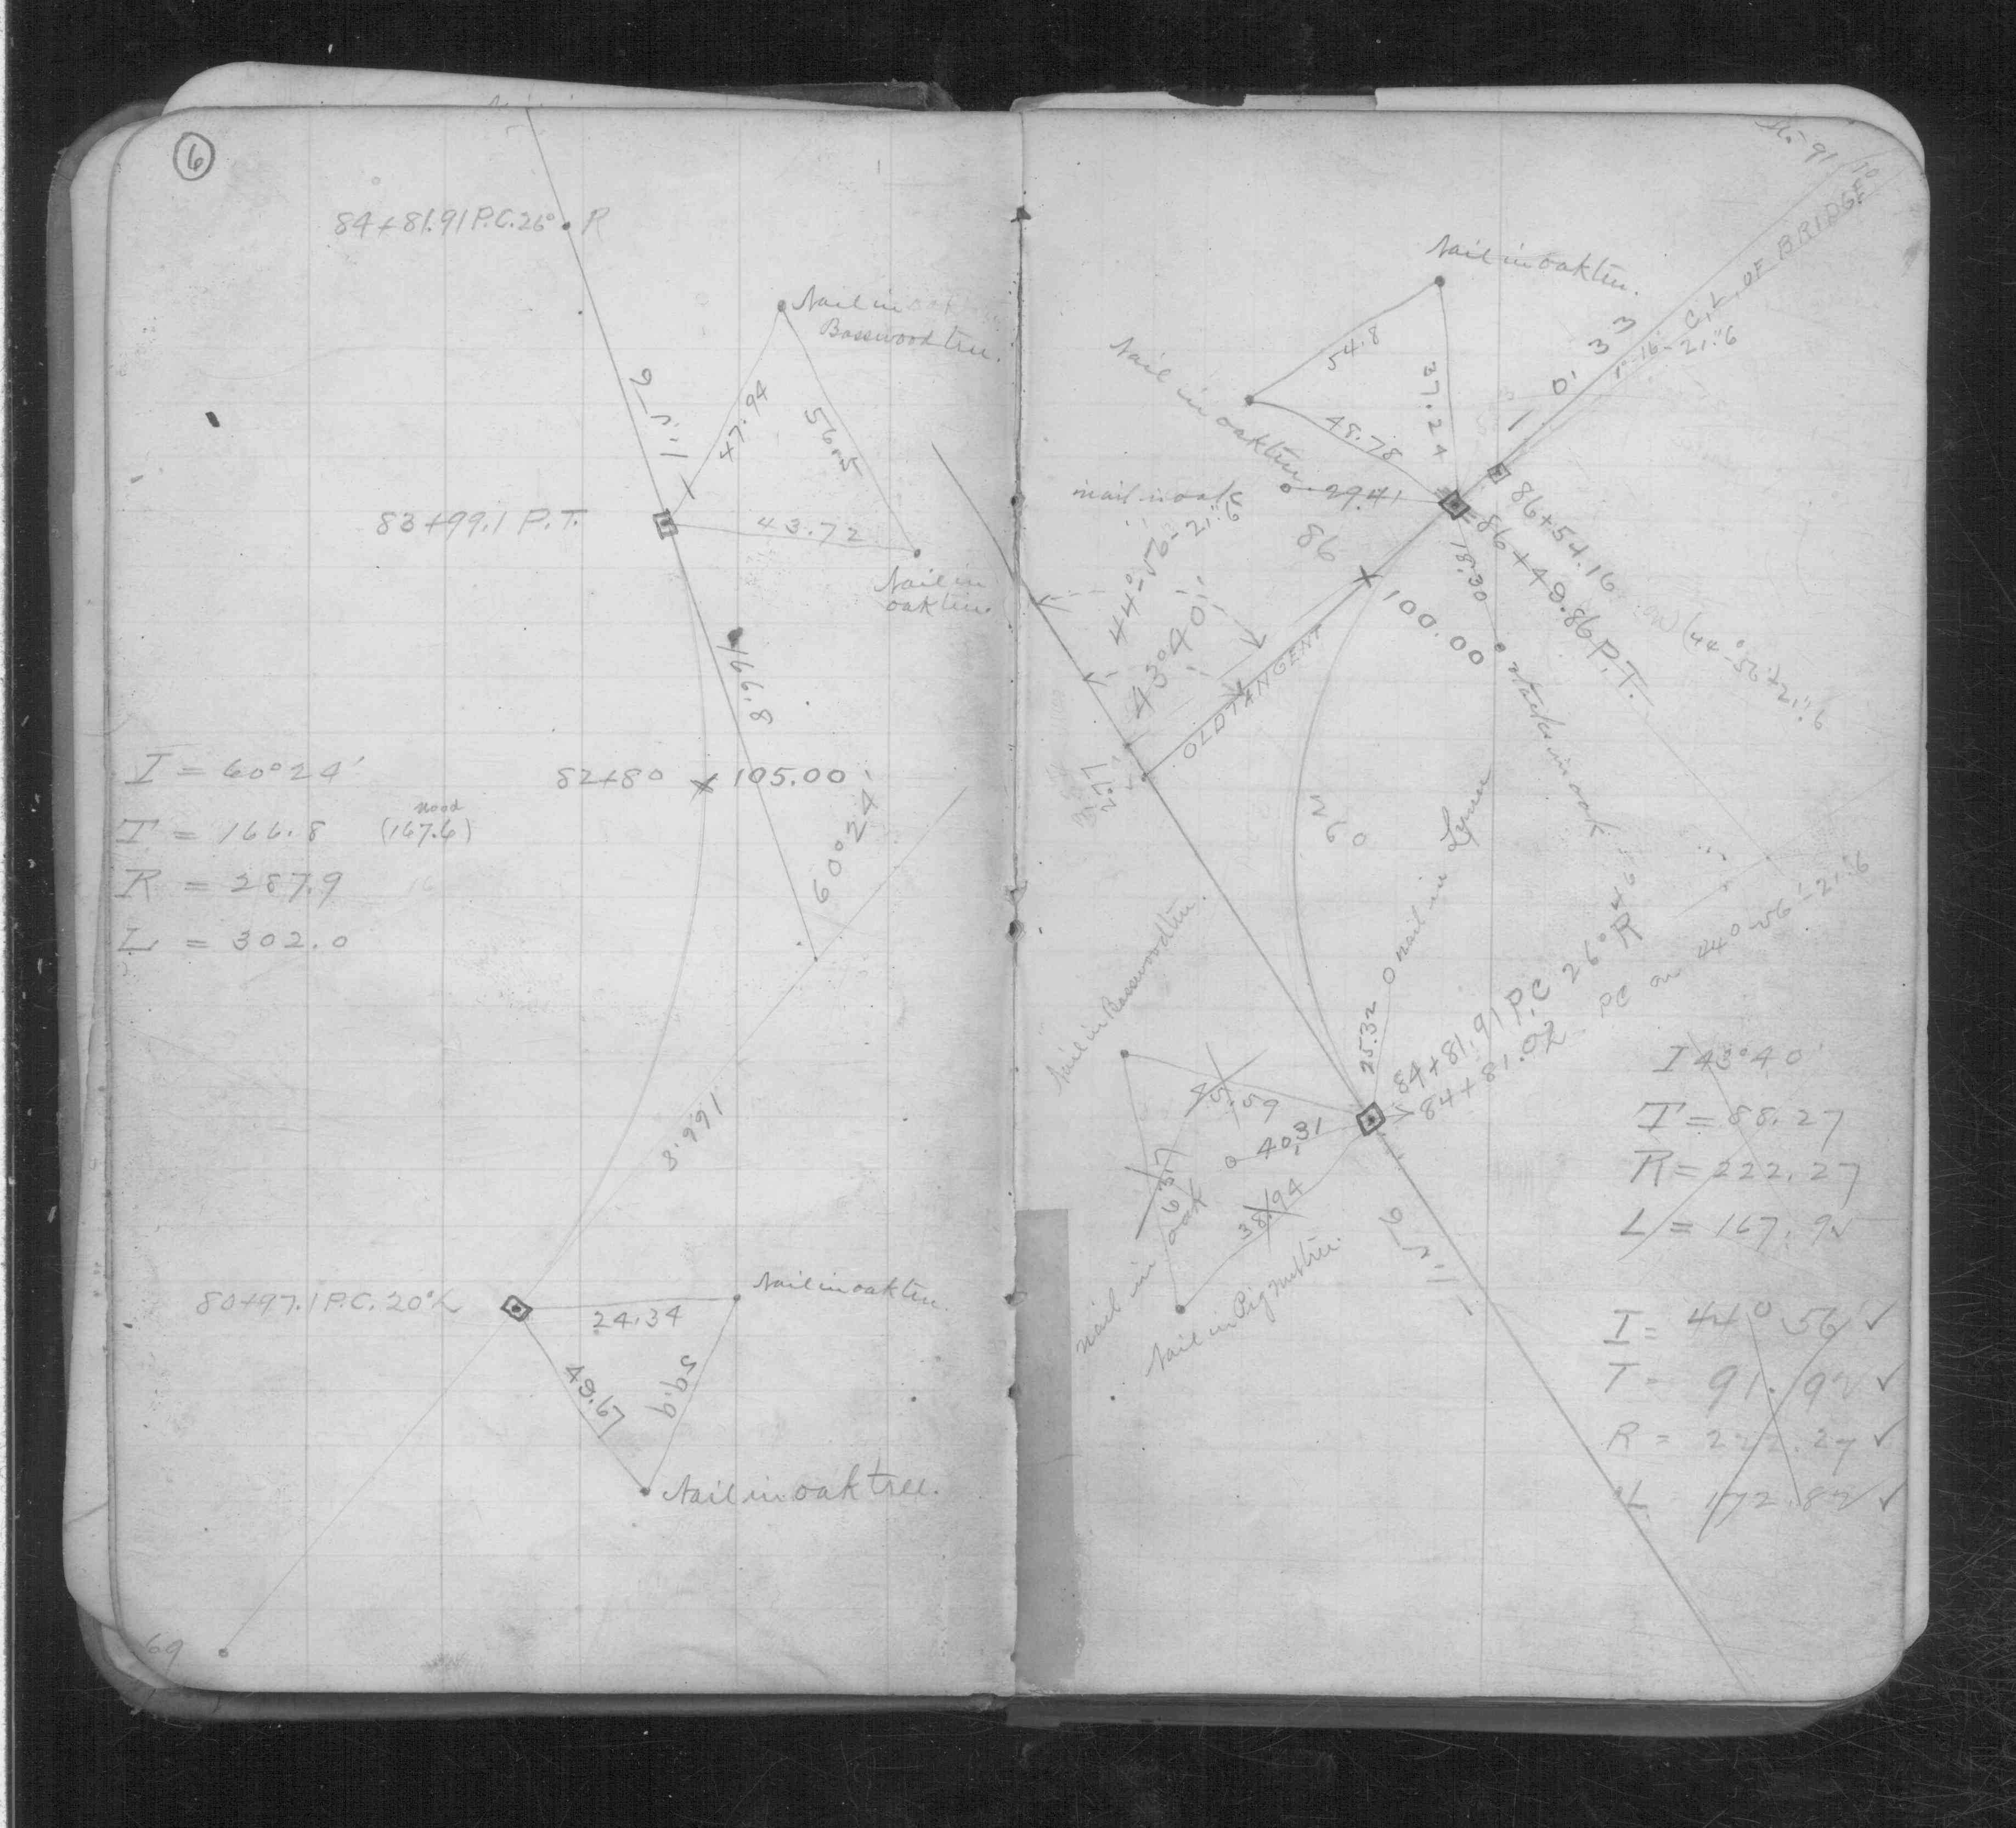 6
84+81.91 P.C. 26° R
Nail in
Basswood tree.
47.94
56.5
83+99.1 P.T.
43.72
Nail in
oak tree.
166.8
I = 60°24'
82+80
105.00
T = 166.8 (167.6)
60°24'
R = 287.9
L = 302.0
166.8
80+97.1 P.C. 20° L
24.34
Nail in oak tree
49.67
59.9
Nail in oak tree.
Sta. 91
C.L. OF BRIDGE
Nail in oak tree.
54.8
37.24
Nail in oak tree
48.78
1°-16'-21".6
nail in oak
29.41
86+54.16
(44°-56'-21".6
86+49.86 P.T.
18.30
86
100.00
44°-56'-21".6
43°40'
OLD TANGENT
3.17
nail in oak
Nail in Basswood tree.
25.32
nail in
84+81.91 P.C. 26° R
84+81.02
PC on 44°-56'-21".6
40.31
63.7
38.94
nail in oak
Nail in Pignut tree.
I 43°40'
T = 88.27
R = 222.27
L = 167.92
I = 44° 56' ✓
T = 91.92 ✓
R = 222.27 ✓
L 172.82 ✓